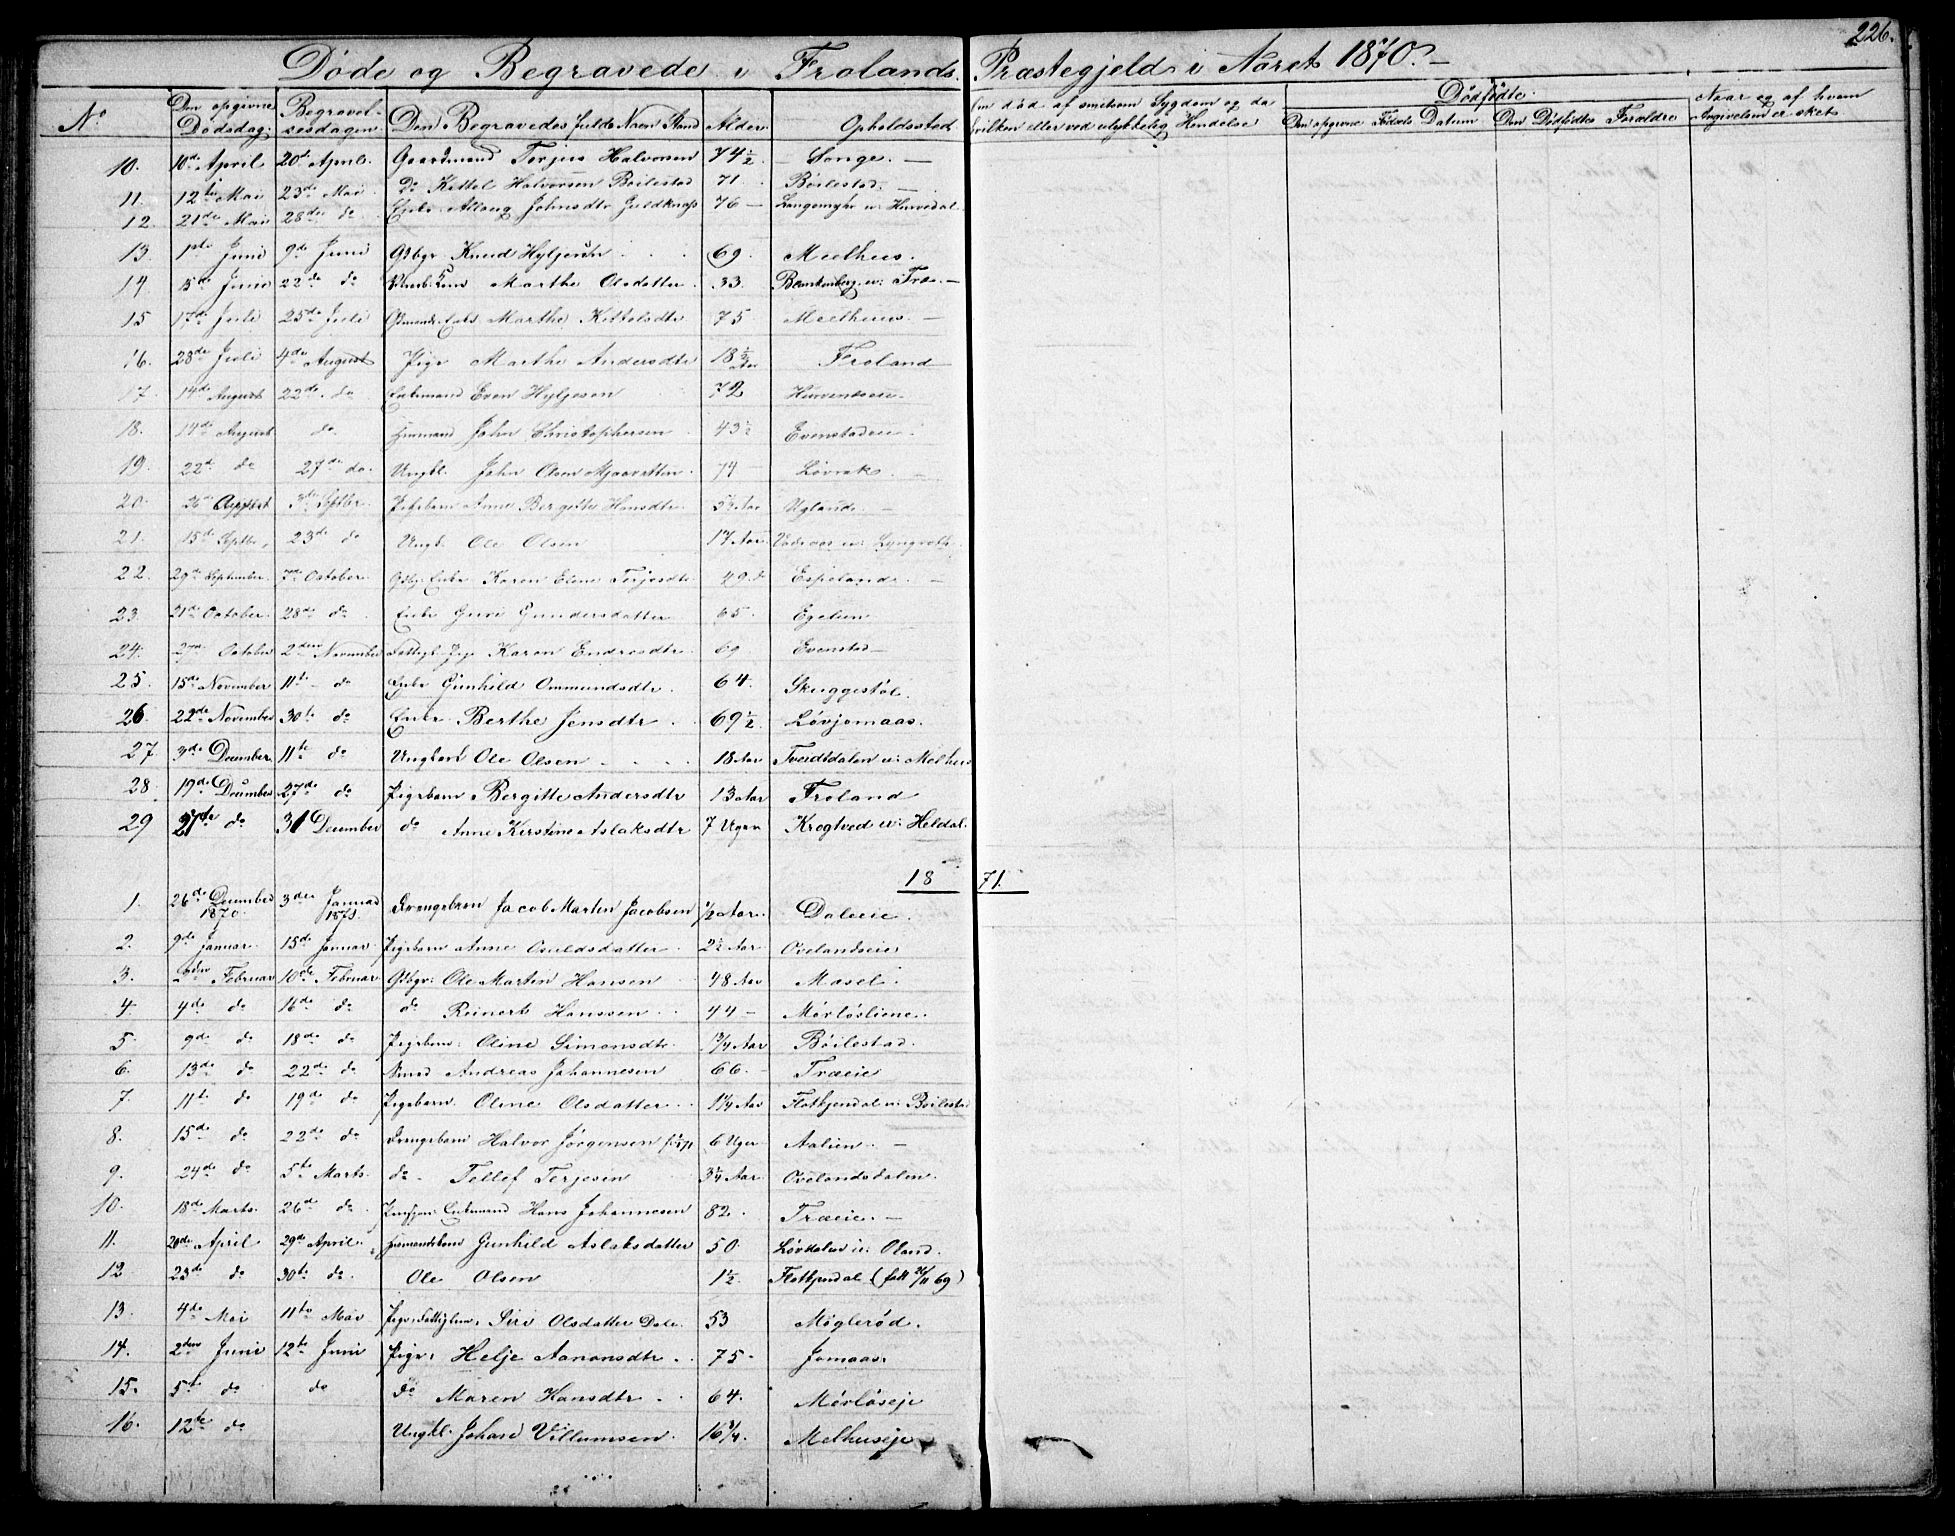 226.
Døde og Begravede i Frolands Præstegjeld i Aaret 1870.
No Den opgivne Dødsdag Begravelsesdagen Den Begravedes fulde Navn Stand Alder Opholdssted Om død af smitsom Sygdom og da hvilken eller ved ulykkelig Hendelse Dødfødte. Den opgivne Fødsels Datum Den Dødfødtes Forældre Naar og af hvem Angivelsen er skeet
10. 10de April 20de April. Gaardmand Terjus Halvorsen 74½ Songe.
11. 12te Mai 23de Mai Do Kittel Halvorsen Bøilestad 71. Bøilestad.
12. 21de Mai 28de do Enke Aslaug Johnsdtr 76 Langemyhr u: Hurvedal
13. 1ste Juni 9de Juni Gdbgr Knud Hyljesen 69. Mælhus.
14 15de Juni 22de do Marthe Olsdatter 33. u: Træ.
15 17de Juli 25de Juli Gdmands Enke Marthe Kittelsdtr 75 Meelhuus.
16. 28de Juli 4de August Pige Marthe Andersdtr 18½ Aar Froland
17. 14de August 22de do Enkemand Even Hyljesen 72
18. 14de August do Huusmand John Christophersen 43½ Evenstadeie.
19. 22de do 27de do. Ungkl. John Olsen 74 Løvrak
20. 26de August 3de Septbr. Pigebarn Anne Bergitte Hansdtr. Aar Ugland
21. 15de Septbr. 23de do Ungk. Ole Olsen 17 Aar u: Lyngroth
22. 29de September 7de October Gdbgr Enke Karen Elene Terjesdtr 49. Espeland.
23. 21de October 28de do Enke Guri Gundersdatter 65. Egelien
24. 27de October 2den November Fattigl. Pige Karen Endresdtr. 69 Evenstad
25. 15de November 11te do Enke Gunhild Ommundsdtr. 64. Skuggestøl.
26. 22de November 30te do Enke Berthe Jensdtr 69½ Løvjomaas.
27. 3de December 11te do Ungkarl Ole Olsen 18 Aar Tveidtdalen u: Melhus
28. 19de December 27de do Pigebarn Bergitte Andersdtr 13 Aar Froland
29 21de do 31 December do Anne Kirstine Aslaksdtr 7 Uger Krogtved u: Heldal.
1871.
1. 26de December 1870. 3de Januar 1871 Drengebarn Jacob Martin Jacobsen ½ Aar. Daleeie.
2. 9de Januar. 15de Januar Pigebarn Anne Osuldsdatter 2½ Aar Ovelandseie
3. 3den Februar 10de Februar Gdbgr: Ole Martin Hansen 48 Aar Mosel.
4. 4de do 16de do do Reinert Hanssen 44 Mørløsliene.
5. 9de do 18de do Pigebarn: Oline Simonsdtr. ¾ Aar Bøilestad.
6. 13de do 22de do Smed Andreas Johannesen 66. Træeie
7. 11te do 19de do Pigebarn Oline Olsdatter 1¼ Aar Flatkjendal u: Bøilestad
8. 15de do 22de do Drengebarn Halvor Jørgensen 6 Uger Aalien.
9. 24de do 5te Marts. do Tellef Terjesen 3¼ Aar Ovelandsdalen.
10. 18de Marts. 26de do Enkemand Hans Johannesen 82. Træeie.
11. 20de April 29de April Gunhild Aslaksdatter 50. Løvdalen u: Oland.
12 23de do 30te do. Ole Olsen 1½. Flatkjendal (født 26/11 69)
13. 4de Mai 11te Mai Pige Siri Olsdatter Dale 53 Møglerød.
14. 2den Juni 12te Juni Pige: Helje Aanonsdtr 75 Jomaas
15. 5te do do do Maren Hansdtr 64. Mørløseje
16. 12te do Ungkl. Johan Villumsen 16¾. Melhuseje